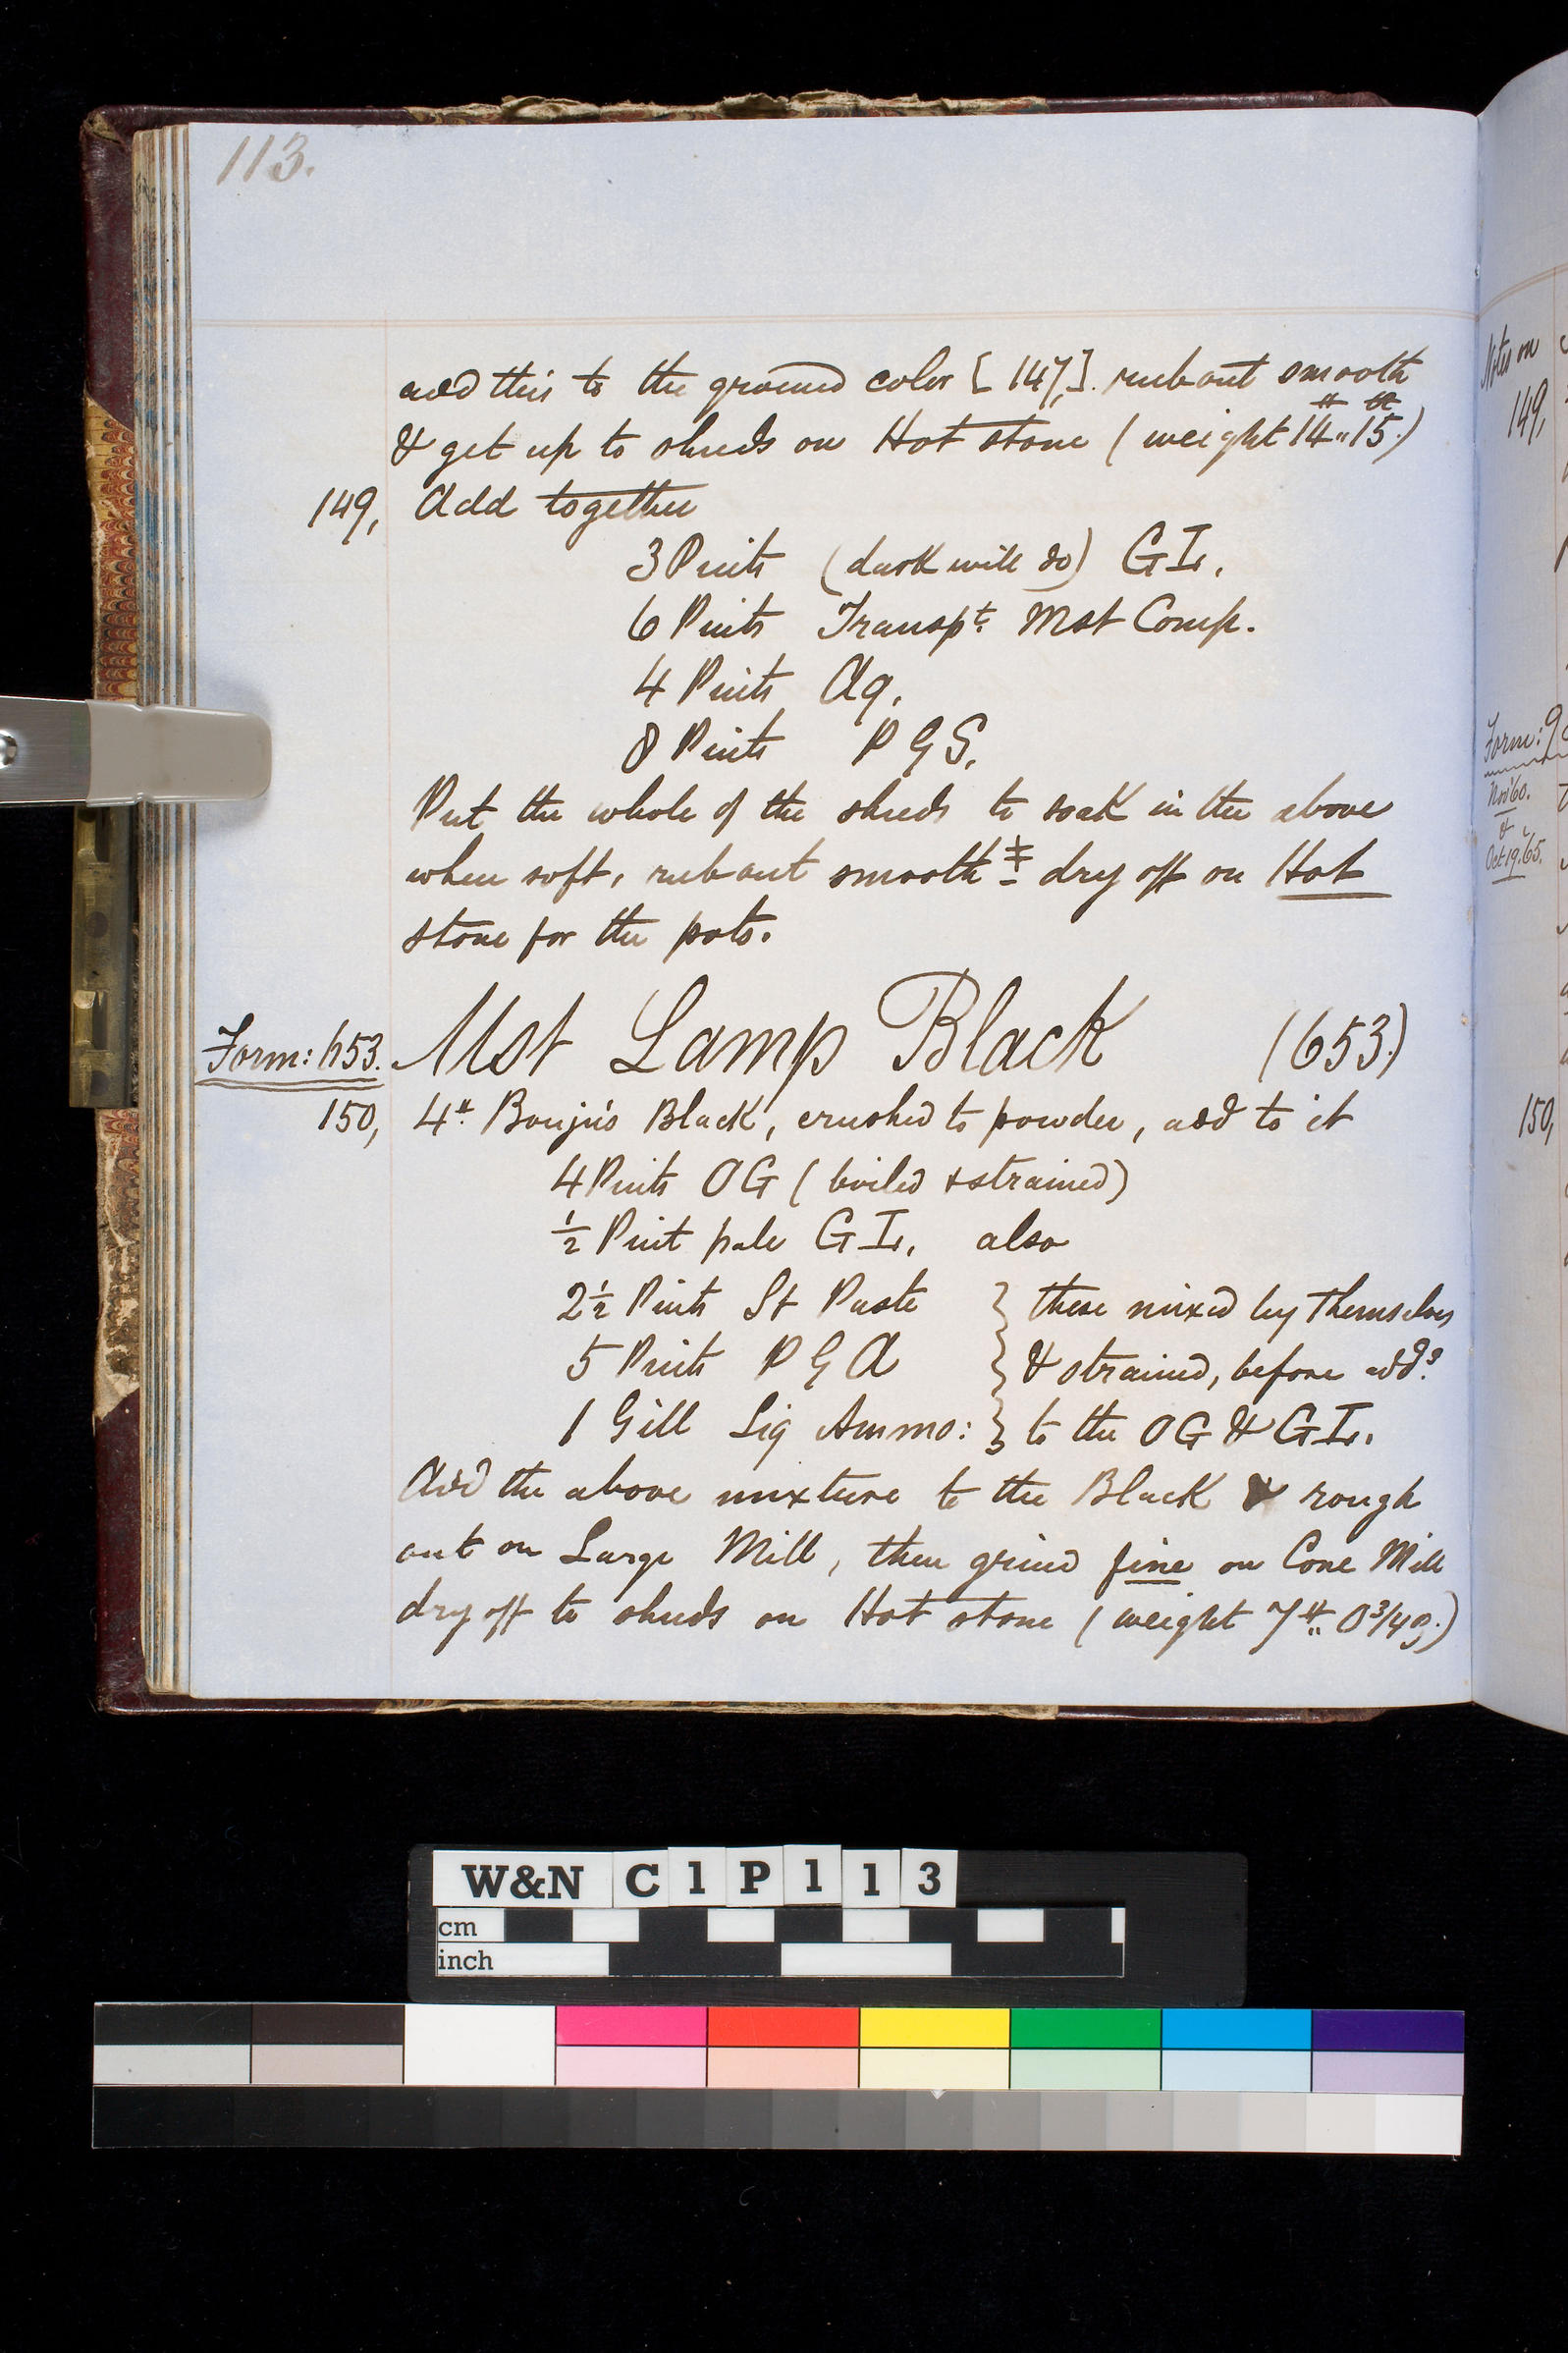 113.
add this to the ground color [147,]. rub out smooth
& get up to shreds on Hot stone (weight 14#"15#.)
149, Add together
3 Pints (dark will do) GIr.
6 Pints Transpt. Mst Comp.
4 Pints Aq.
8 Pints P G S.
Put the whole of the shreds to soak in the above
when soft, rub out smooth ‡ dry off on Hot
stone for the pots.
Form: 653. Mst Lamp Black (653.)
150, 4# Bonjus Black, crushed to powder, add to it
4 Pints OG (boiled & strained)
½ Pint pale GIr. also
2½ Pints St Paste } these mixed by themselves
5 Pints P G A } & strained, before add?
1 Gill Liq Ammo: } to the OG & GIr.
Add the above mixture to the Black & rough
out on Large Mill, then grind fine on Cone Mill
dry off to shreds on Hot stone (weight 7#" 0¾ g.)
Notes on
149,
Form: 9
Nov '60.
&
Oct 19. 65.
150,
W&N C1P113
cm
inch